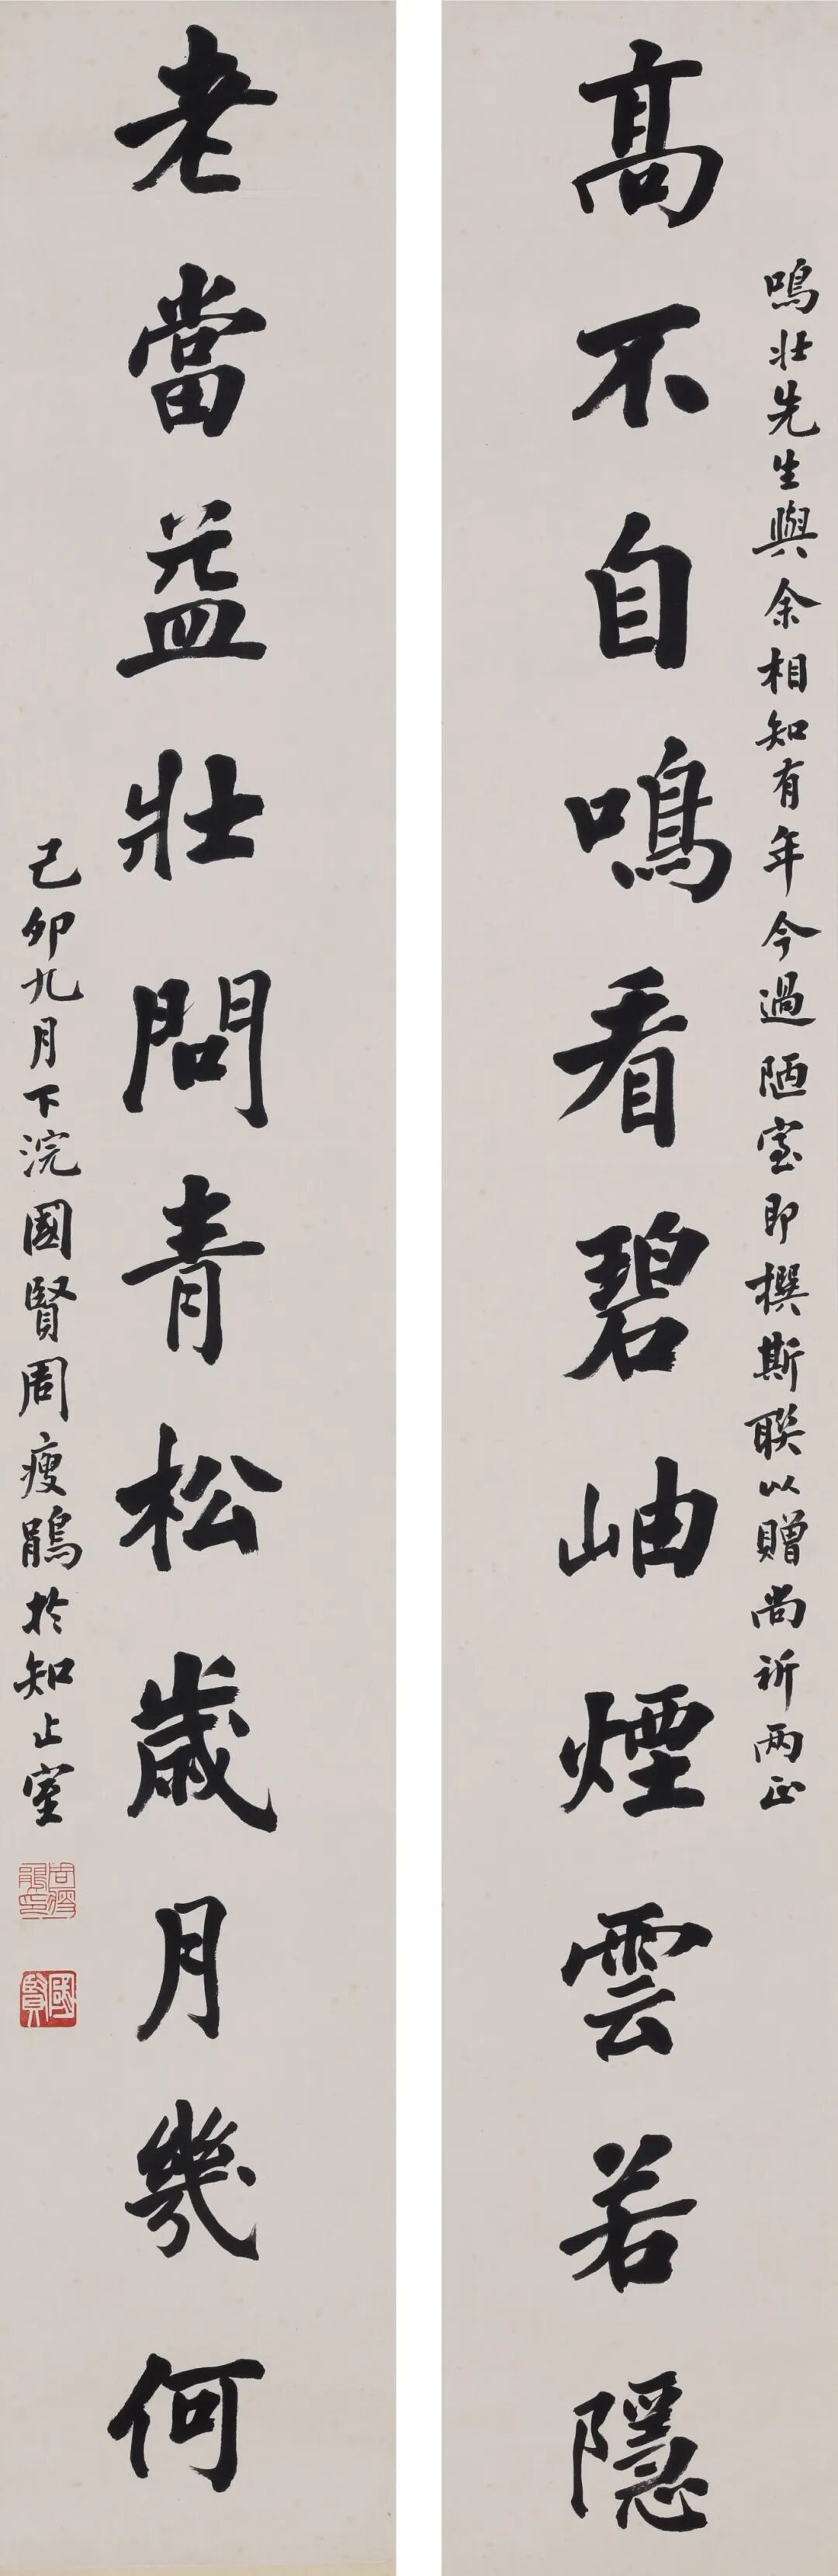 鳴壯先生與余相知有年今過陋室即撰斯聯以贈尚祈兩正
高不自鳴看碧岫煙雲若隱
老當益壯問青松歲月幾何
己卯九月下浣國賢周瘦鵑於知止室
周瘦鵑印
國賢